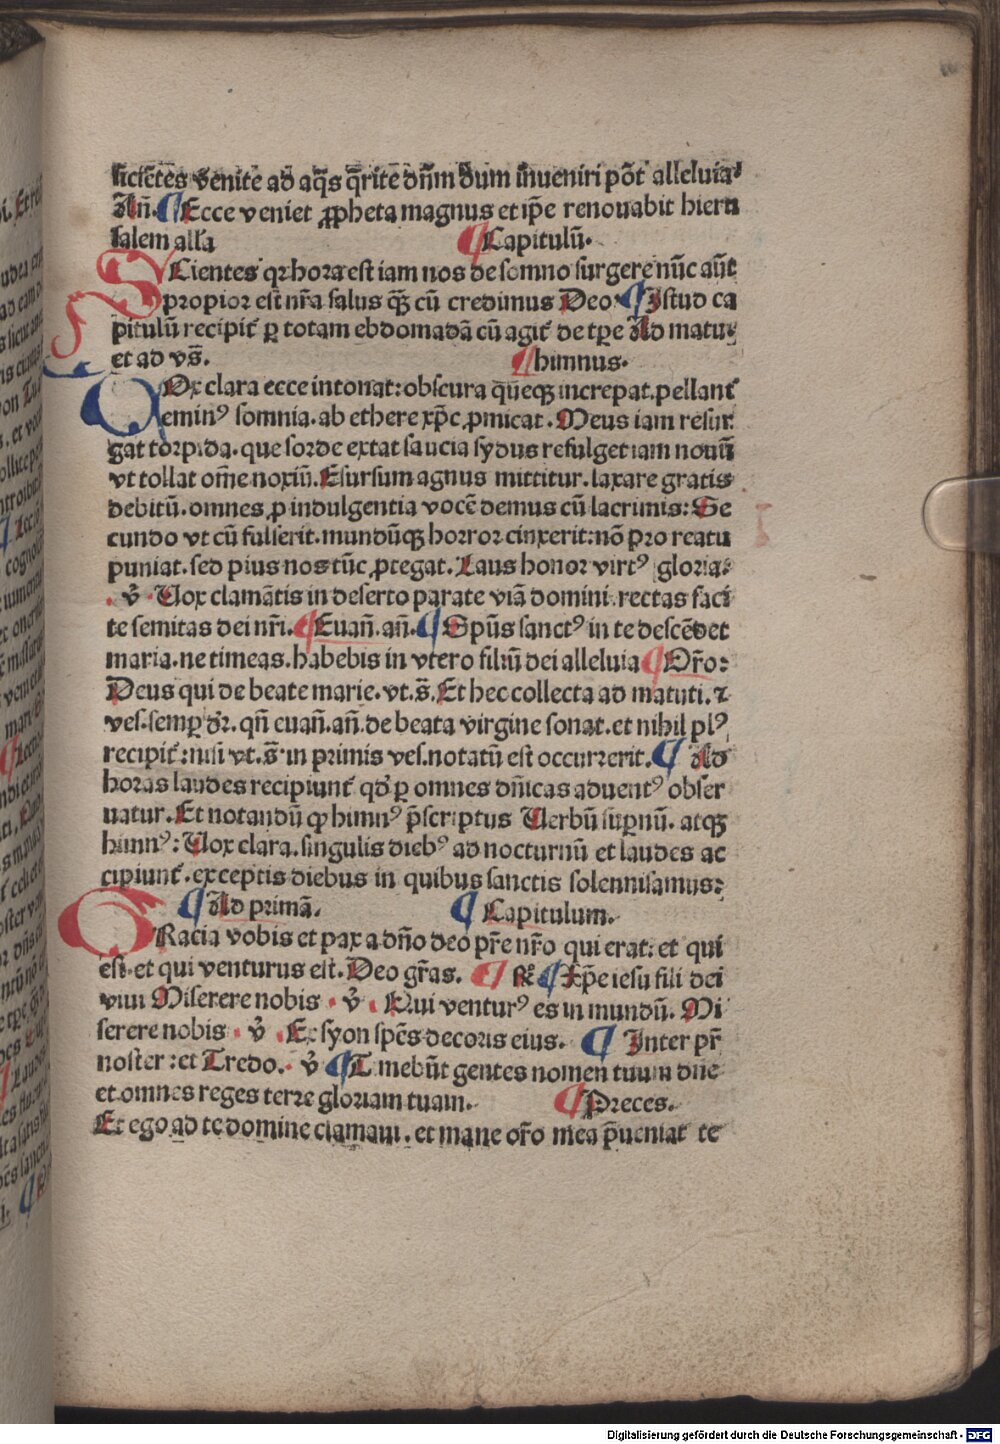 sicientes venite ad aq̄s q̄rite dn̄m dum inueniri põt alleluia
An̄. ¶ Ecce veniet ꝓpheta magnus et ip̄e renouabit hieru
salem alla ¶ Capitulū.
SCientes qr hora est iam nos de somno surgere nūc aūt
propior est nr̄a salus qȝ cū credimus Deo: ¶ Istud ca
pitulū recipit᷑ ꝑ totam ebdomadā cū agit᷑ de tp̄e Ad matu
et ad vs̄. ¶ himnus.
VOx clara ecce intonat: obscura queqȝ increpat. pellant᷑
eminꝰ somnia. ab ethere xp̄c ꝓmicat. Meus iam resur
gat torpida. que sorde extat saucia sydus refulget iam nouū
vt tollat om̄e noxiū. Esursum agnus mittitur. laxare gratis
debitū. omnes ꝓ indulgentia vocē demus cū lacrimis: Se
cundo vt cū fulserit. mundūqȝ horror cinxerit: nō pro reatu
puniat. sed pius nos tūc ꝓtegat. Laus honor virtꝰ gloria.
. v̄ . Vox clamātis in deserto parate viā domini. rectas faci
te semitas dei nr̄i. ¶ Euan̄. an̄. ¶ Spūs sanctꝰ in te descēdet
maria. ne timeas. habebis in vtero filiū dei alleluia ¶ Or̄o:
Deus qui de beate marie. vt. s̄. Et hec collecta ad matuti. ⁊
ves. semꝑ dr̄. qn̄ euan̄. an̄. de beata virgine sonat. et nihil plꝰ
recipit᷑: nisi vt. s̄. in primis ves. notatū est occurrerit. ¶ Ad
horas laudes recipiunt᷑ qd̄ ꝑ omnes dn̄icas aduentꝰ obser
uatur. Et notandū ꝙ himnꝰ p̄scriptus Verbū suꝑnū. atqȝ
himnꝰ: Vox clara. singulis diebꝰ ad nocturnū et laudes ac
cipiunt᷑. exceptis diebus in quibus sanctis solennisamus:
¶ Ad primā. ¶ Capitulum.
GRacia vobis et pax a dn̄o deo pr̄e nr̄o qui erat: et qui
est. et qui venturus est. Deo gr̄as. ¶ R̄ ¶ Xp̄e iesu fili dei
viui Miserere nobis . v̄ . Qui venturꝰ es in mundū. Mi
serere nobis . v̄ . Ex syon spēs decoris eius. ¶ Inter pr̄
noster: et Credo. . v̄ ¶ Timebūt gentes nomen tuum dn̄e
et omnes reges terre gloriam tuam. ¶ Preces.
Et ego ad te domine clamaui. et mane or̄o mea p̄ueniat te
Digitalisierung gefördert durch die Deutsche Forschungsgemeinschaft - DFG